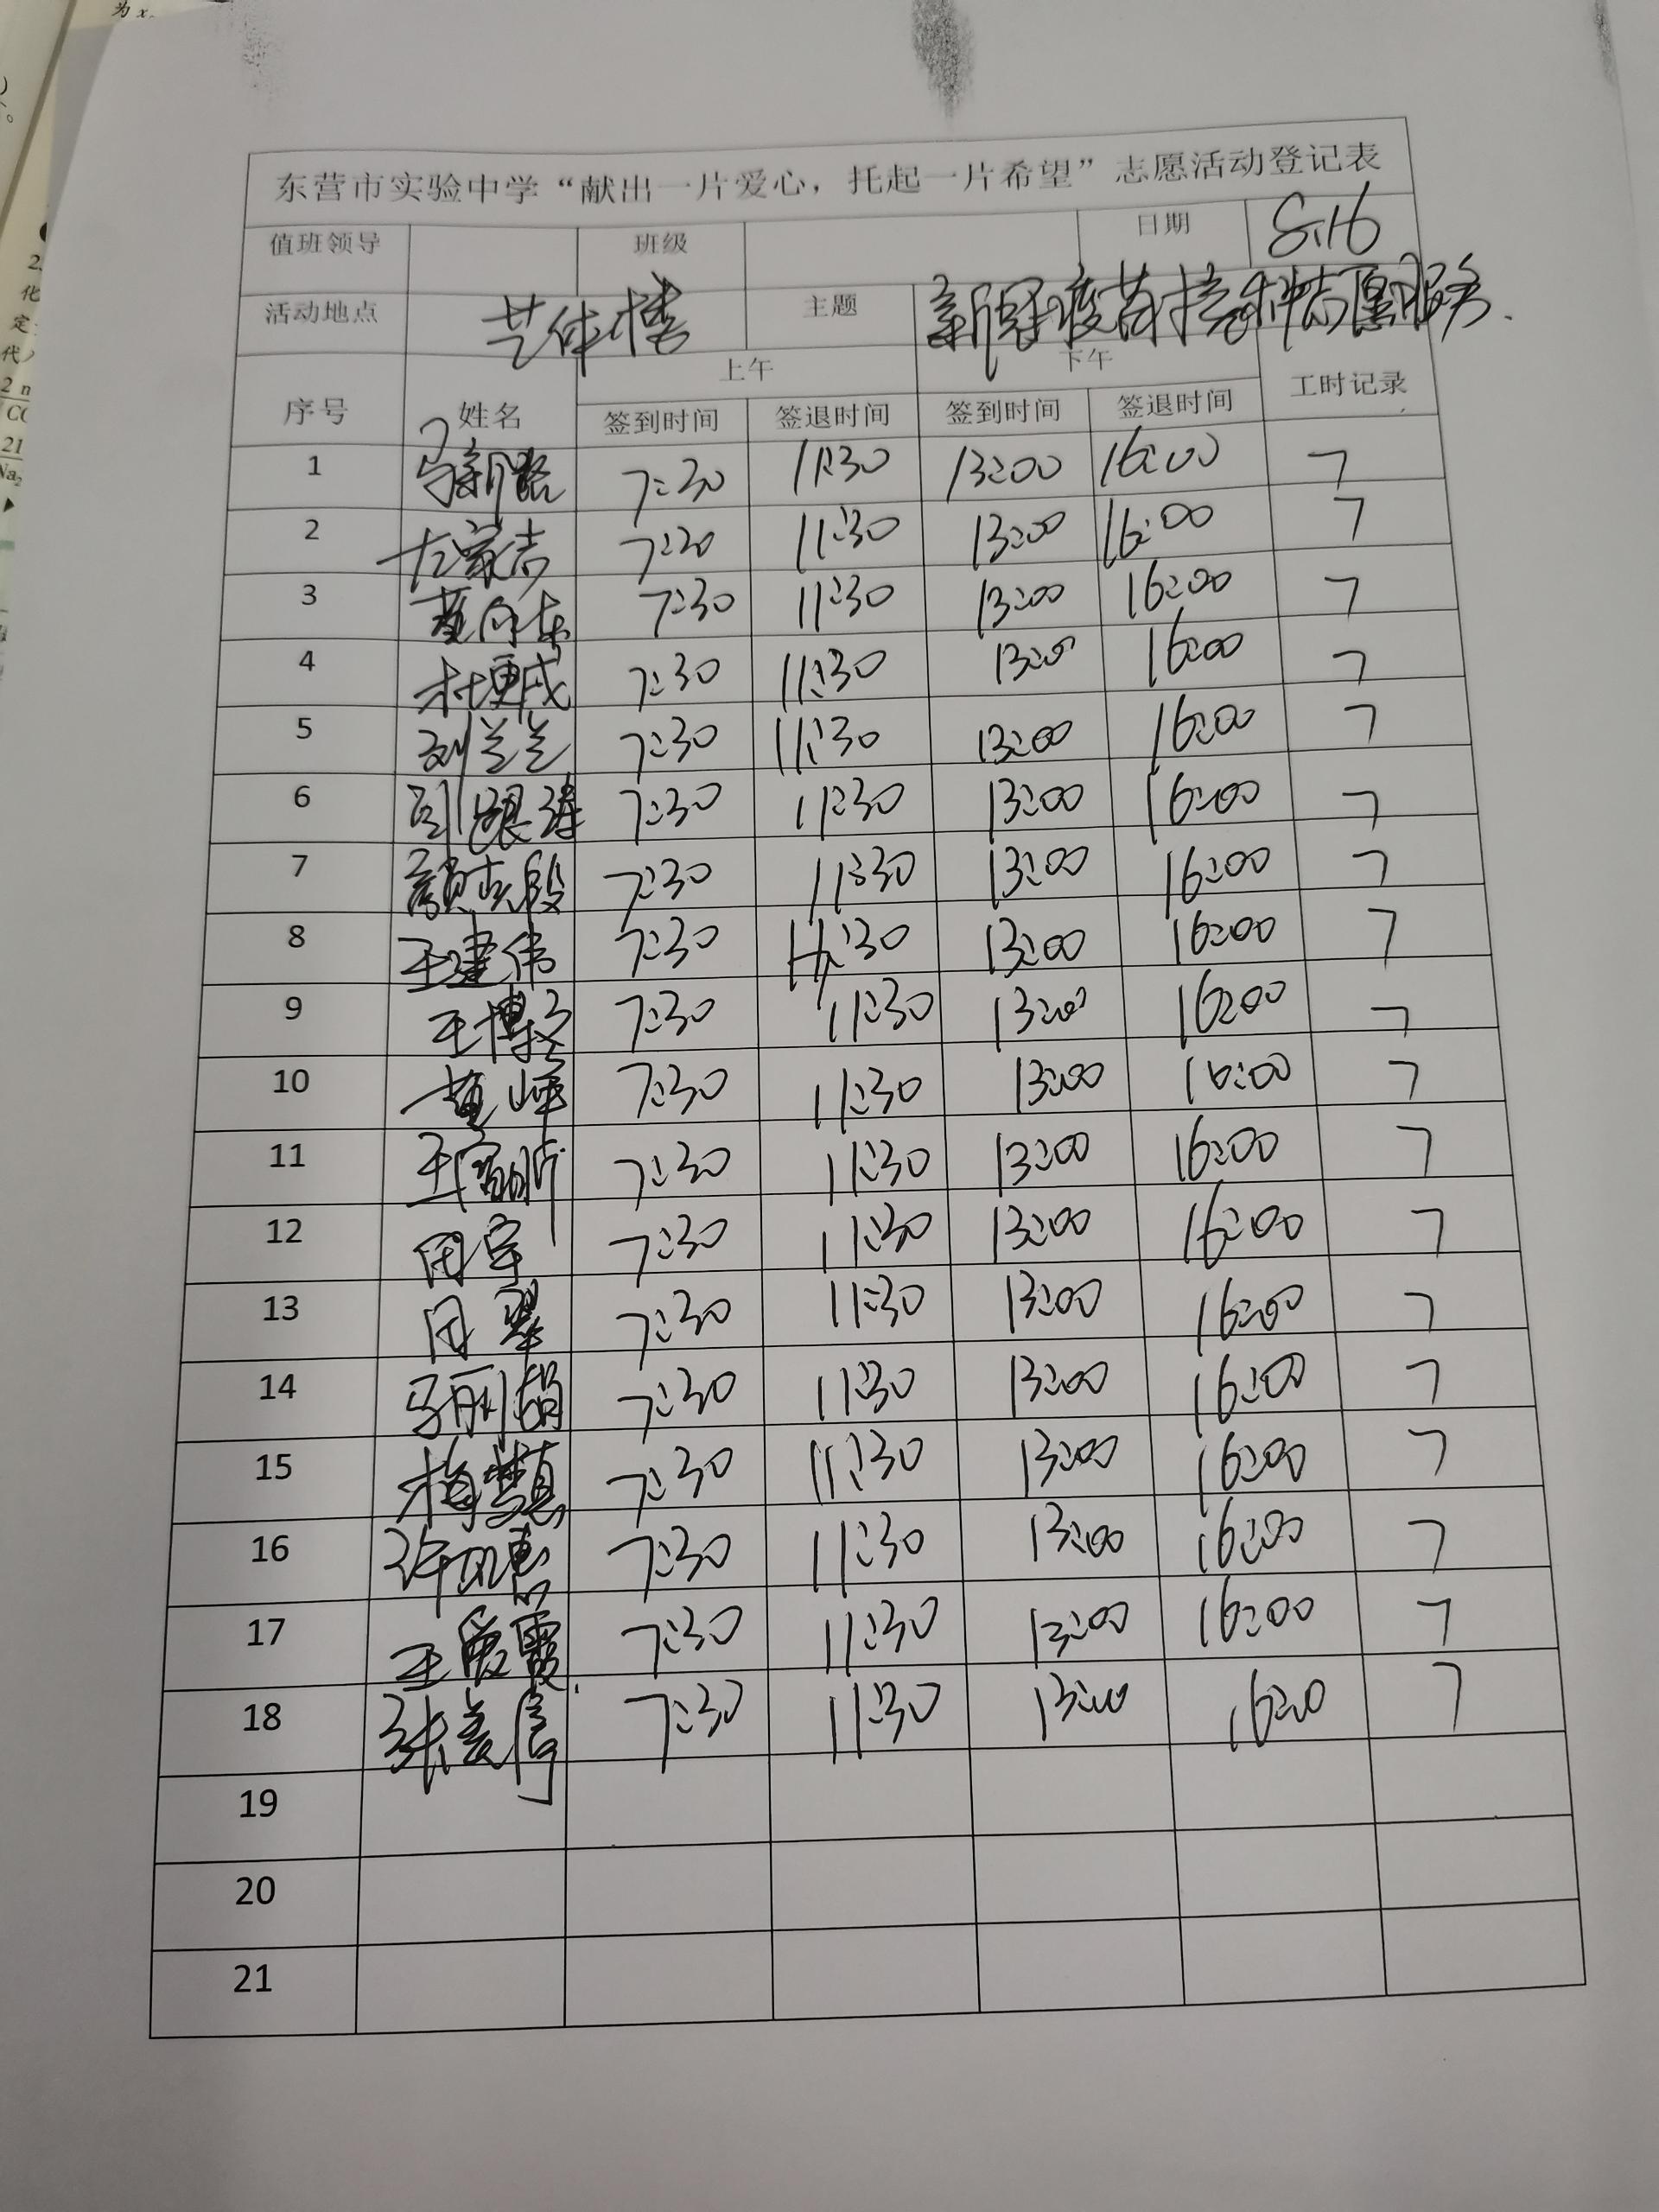 东营市实验中学“献出一片爱心，托起一片希望”志愿活动登记表
值班领导 班级 日期 8.16
活动地点 艺体楼 主题 新冠疫苗接种志愿服务.
上午 下午
序号 姓名 签到时间 签退时间 签到时间 签退时间 工时记录
1 马新路 7:30 11:30 13:00 16:00 7
2 左家志 7:30 11:30 13:00 16:00 7
3 董向东 7:30 11:30 13:00 16:00 7
4 杜更成 7:30 11:30 13:00 16:00 7
5 刘兰兰 7:30 11:30 13:00 16:00 7
6 7:30 11:30 13:00 16:00 7
7 7:30 11:30 13:00 16:00 7
8 王建伟 7:30 11:30 13:00 16:00 7
9 7:30 11:30 13:00 16:00 7
10 7:30 11:30 13:00 16:00 7
11 7:30 11:30 13:00 16:00 7
12 周宇 7:30 11:30 13:00 16:00 7
13 周翠 7:30 11:30 13:00 16:00 7
14 马丽娟 7:30 11:30 13:00 16:00 7
15 7:30 11:30 13:00 16:00 7
16 7:30 11:30 13:00 16:00 7
17 王爱霞 7:30 11:30 13:00 16:00 7
18 7:30 11:30 13:00 16:00 7
19
20
21